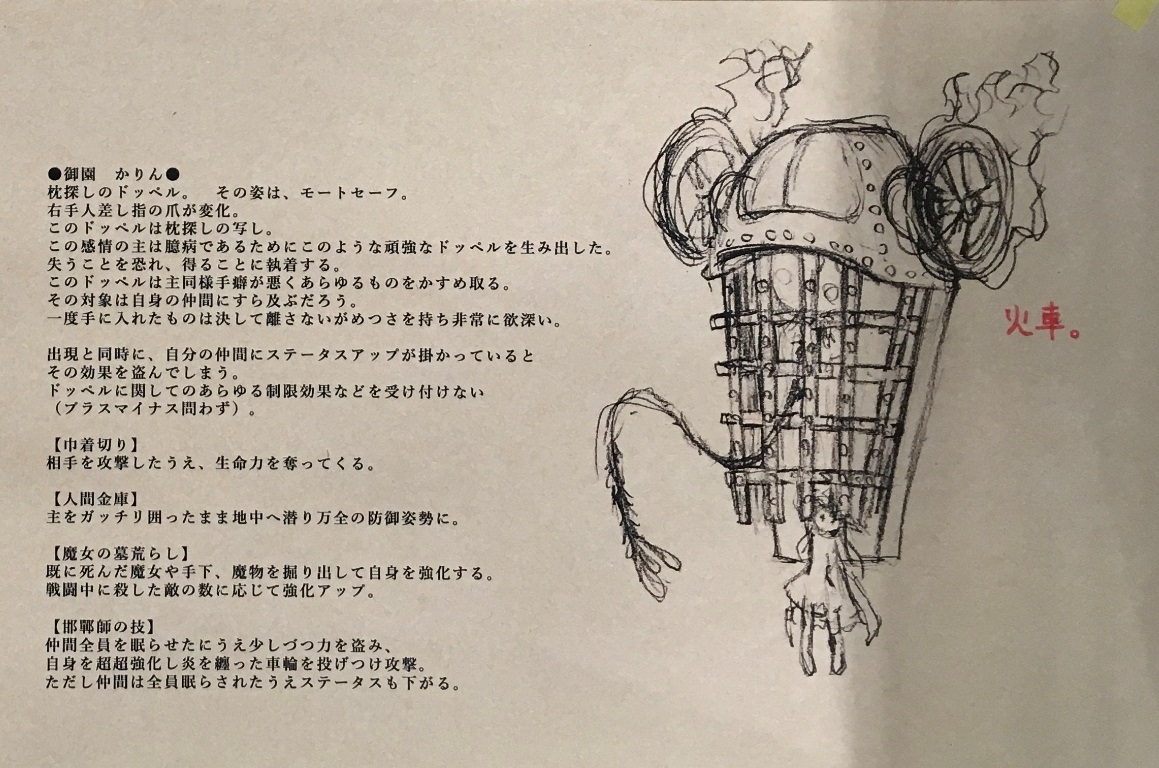 ●御園　かりん●
枕探しのドッペル。　その姿は、モートセーフ。
右手人差し指の爪が変化。
このドッペルは枕探しの写し。
この感情の主は臆病であるためにこのような頑強なドッペルを生み出した。
失うことを恐れ、得ることに執着する。
このドッペルは主同様手癖が悪くあらゆるものをかすめ取る。
その対象は自身の仲間にすら及ぶだろう。
一度手に入れたものは決して離さないがめつさを持ち非常に欲深い。
出現と同時に、自分の仲間にステータスアップが掛かっていると
その効果を盗んでしまう。
ドッペルに関してのあらゆる制限効果などを受け付けない
（プラスマイナス問わず）。
【巾着切り】
相手を攻撃したうえ、生命力を奪ってくる。
【人間金庫】
主をガッチリ囲ったまま地中へ潜り万全の防御姿勢に。
【魔女の墓荒らし】
既に死んだ魔女や手下、魔物を掘り出して自身を強化する。
戦闘中に殺した敵の数に応じて強化アップ。
【邯鄲師の技】
仲間全員を眠らせたにうえ少しづつ力を盗み、
自身を超超強化し炎を纏った車輪を投げつけ攻撃。
ただし仲間は全員眠らされたうえステータスも下がる。
火車。